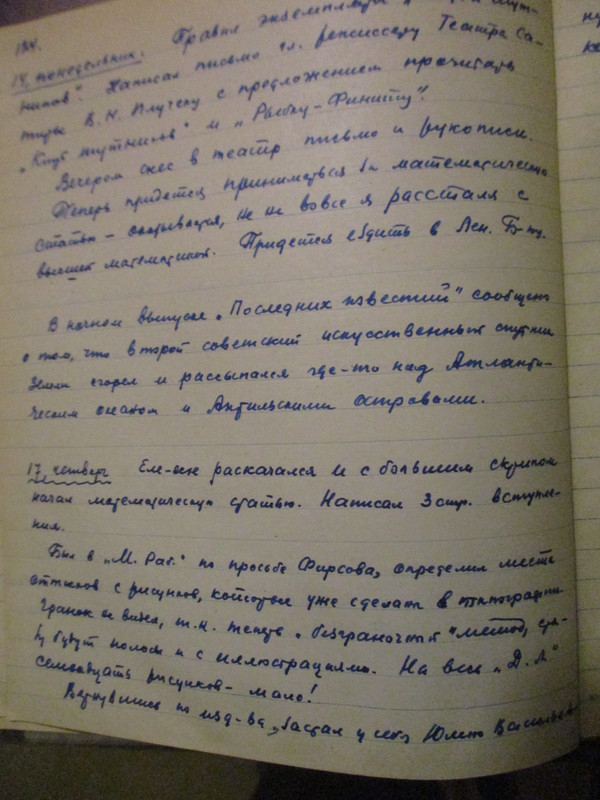 134.
14, понедельник. Правил экземпляры
ников". Написал письмо гл. режиссеру Театра Са-
тиры В. Н. Плучеку с предложением прочитать
„Клуб шутников" и „Рыбку-Финиту".
Вечером снес в театр письмо и рукописи.
Теперь придется приниматься за математическую
статью – оказывается, не вовсе я расстался с
высшей математикой. Придется ездить в Лен. Б-ку.
В ночном выпуске „Последних известий" сообщено
о том, что второй советский искусственный спутник
Земли сгорел и рассыпался где-то над Атланти-
ческим океаном и Антильскими островами.
17, четверг Еле-еле раскачался и с большим скрипом
начал математическую статью. Написал 3 стр. вступле-
ния.
Был в „М. Раб." по просьбе Фирсова, определил места
оттисков с рисунков, которые уже сделали в типографии.
Гранок не видел, т.к. теперь „безграночный" метод,
будут полосы и с иллюстрациями. На всю „Д. Л."
семнадцать рисунков – мало!
Вернувшись из изд-ва, застал у себя Юлию Васильевну